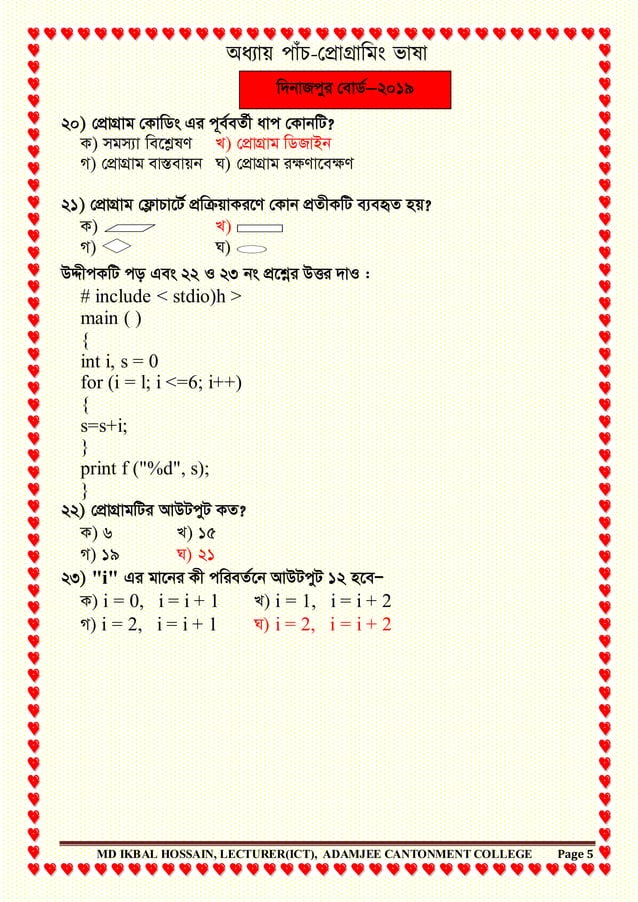 অধ্যায় পাঁচ-প্রোগ্রামিং ভাষা
দিনাজপুর বোর্ড–২০১৯
২০) প্রোগ্রাম কোডিং এর পূর্ববর্তী ধাপ কোনটি?
ক) সমস্যা বিশ্লেষণ খ) প্রোগ্রাম ডিজাইন
গ) প্রোগ্রাম বাস্তবায়ন ঘ) প্রোগ্রাম রক্ষণাবেক্ষণ
২১) প্রোগ্রাম ফ্লোচার্টে প্রক্রিয়াকরণে কোন প্রতীকটি ব্যবহৃত হয়?
ক) খ)
গ) ঘ)
উদ্দীপকটি পড় এবং ২২ ও ২৩ নং প্রশ্নের উত্তর দাও :
# include < stdio)h >
main ( )
{
int i, s = 0
for (i = l; i <=6; i++)
{
s=s+i;
}
print f ("%d", s);
}
২২) প্রোগ্রামটির আউটপুট কত?
ক) ৬ খ) ১৫
গ) ১৯ ঘ) ২১
২৩) "i" এর মানের কী পরিবর্তনে আউটপুট ১২ হবে–
ক) i = 0, i = i + 1 খ) i = 1, i = i + 2
গ) i = 2, i = i + 1 ঘ) i = 2, i = i + 2
MD IKBAL HOSSAIN, LECTURER(ICT), ADAMJEE CANTONMENT COLLEGE Page 5